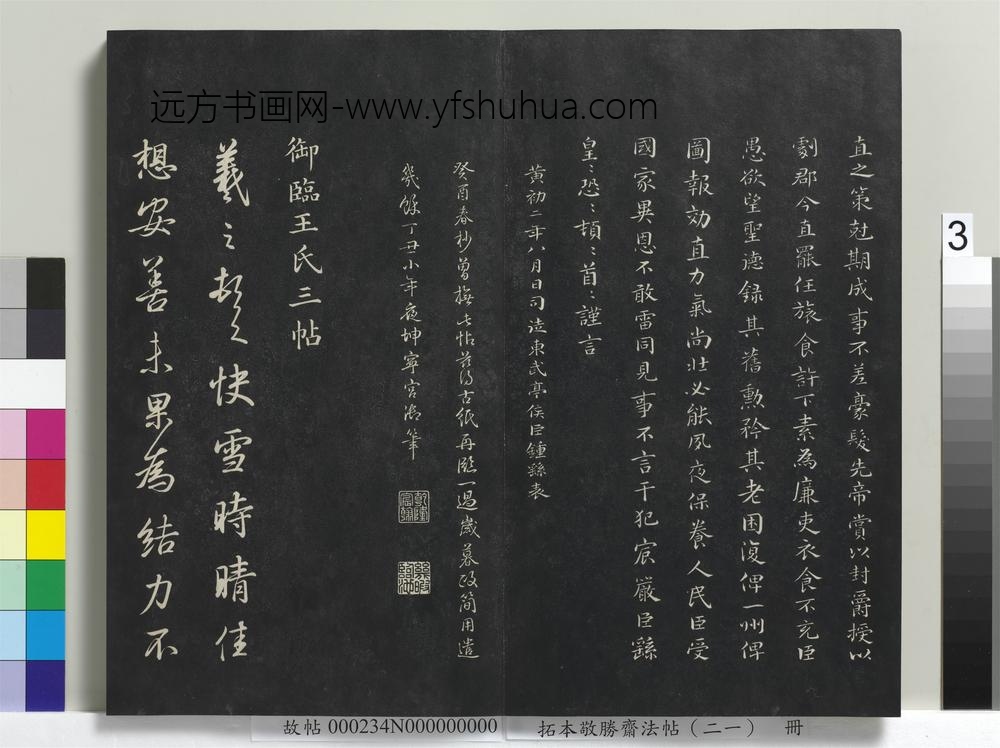 远方书画网-www.yfshuhua.com
直之策尅期成事不差豪髮先帝賞以封爵授以
劇郡今直罷任旅食許下素為廉吏衣食不充臣
愚欲望聖德録其舊勲矜其老困復俾一州俾
圖報効直力氣尚壯必能夙夜保養人民臣受
國家異恩不敢雷同見事不言干犯宸嚴臣繇
皇〻恐〻頓〻首〻謹言
黃初二年八月日司徒東武亭侯臣鍾繇表
癸酉春杪曾撫此帖茲得古紙再臨一過歲暮政簡用遣
幾餘丁丑小年夜坤寧宮御筆
御臨王氏三帖
羲之頓首快雪時晴佳
想安善未果為結力不
3
故帖 000234N000000000
拓本敬勝齋法帖（二一） 冊